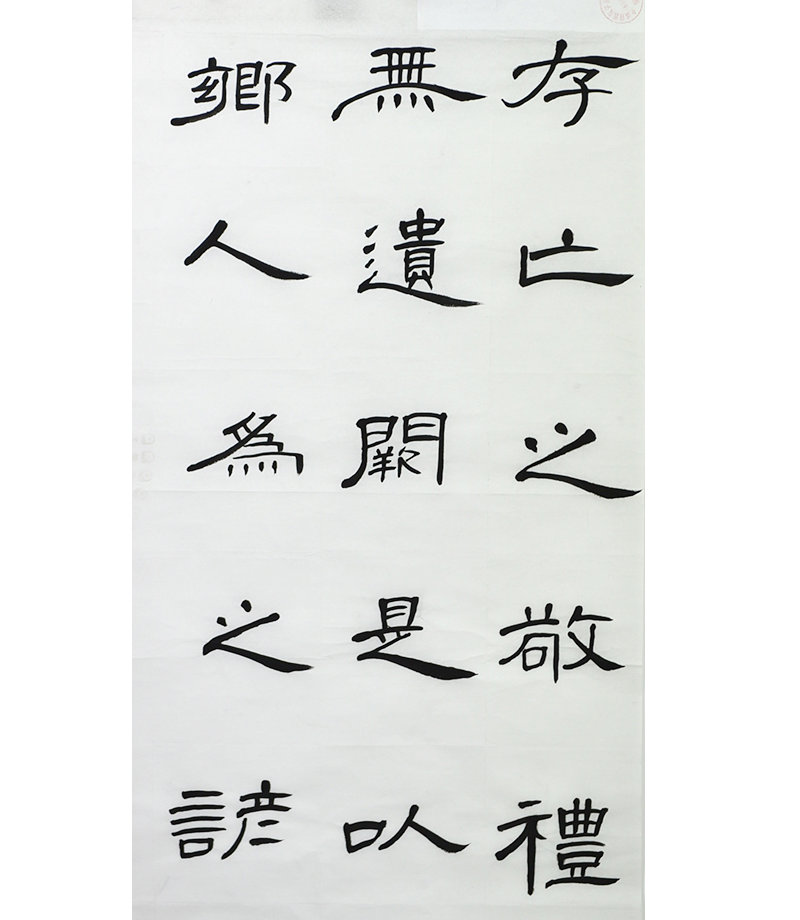 存亡之敬禮
無遺闕是以
鄉人為之諺